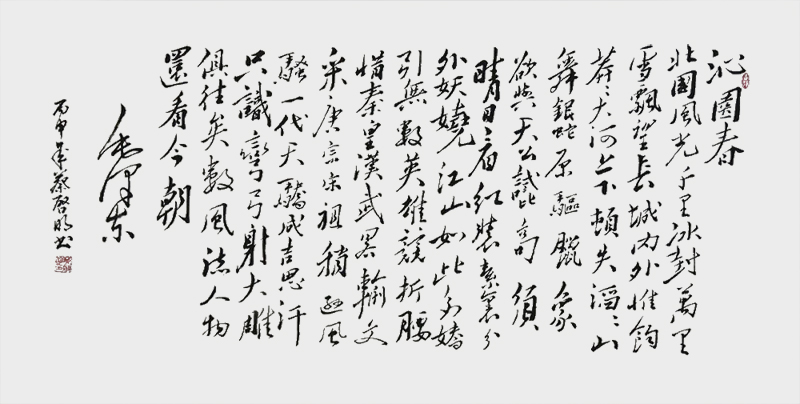 沁園春
北國風光千里冰封萬里
雪飄望長城内外惟餘
莽〻大河上下頓失滔〻山
舞銀蛇原驅臘象
欲與天公試比高須
晴日看紅裝素裹分
外妖嬈江山如此多嬌
引無數英雄競折腰
惜秦皇漢武畧輸文
采唐宗宋祖稍遜風
騷一代天驕成吉思汗
只識彎弓射大雕
俱往矣數風流人物
還看今朝
毛澤東
丙申年蔡啓明書